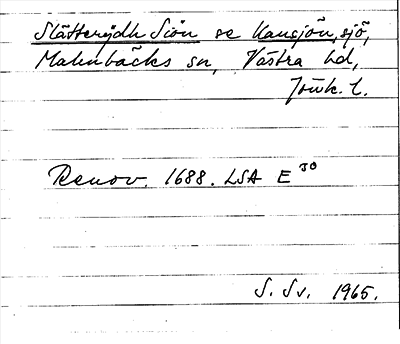 Slätterydh Siön se Kansjön, sjö,
Malmbäcks sn, Västra hd,
Jönk. l.
Renov. 1688. LSA E 30
S. Sv. 1965.